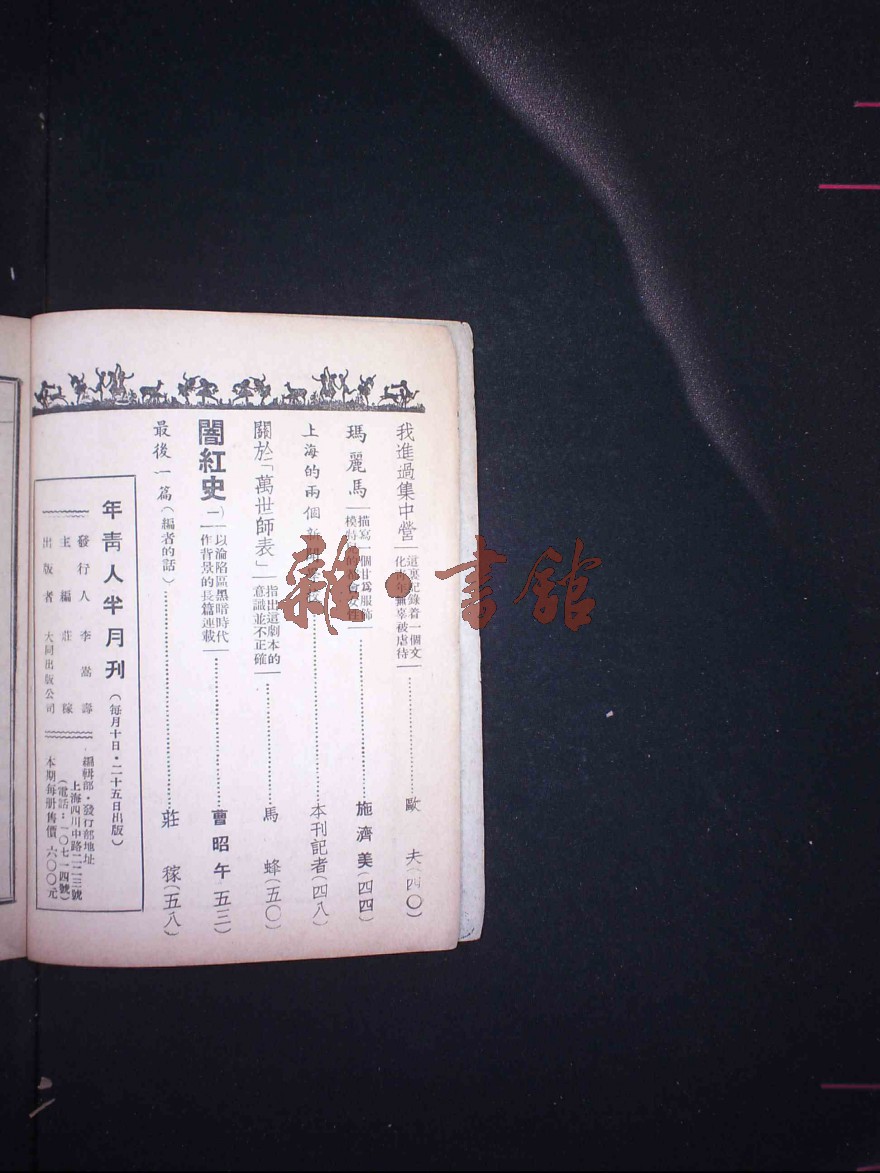 我進過集中營
這裏紀錄着一個文
化青年無辜被虐待
歐 夫(四〇)
瑪麗馬
描寫一個甘爲服飾
模特兒的 女性
施濟美(四四)
上海的兩個新聞
本刊記者(四八)
關於「萬世師表」
指出這劇本的
意識並不正確
馬 蜂(五〇)
闇紅史(一)
以淪陷區黑暗時代
作背景的長篇連載
曹昭午(五三)
最後一篇(編者的話)
莊 稼(五八)
年靑人半月刊(每月十日·二十五日出版)
發行人 李嵩壽
主編 莊稼
出版者 大同出版公司
編輯部·發行部地址
上海四川中路二二三號
(電話:一〇七一四號)
本期每册售價六〇〇元
雜·書館